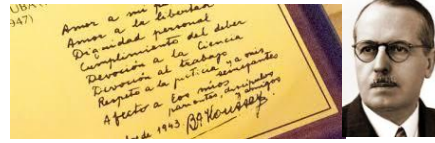 UBA
1947)
Amor a mi
Amor a la libertad
Dignidad personal
Cumplimiento del deber
Devoción a la Ciencia
Devoción al trabajo
Respeto a la justicia y a mis
semejantes
Afecto a los míos
parientes, discípulos
y amigos
de 1943 B.A. Houssay